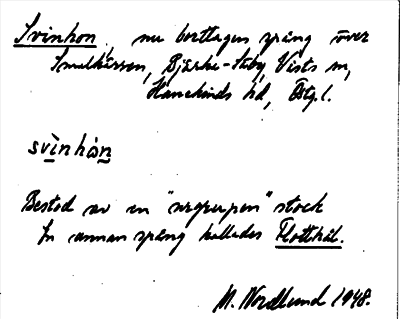 Svinhon, nu borttagen spång över
Smulkärren, Bjärka-Säby, Vists sn,
Hanekinds hd, Östg.l.
svìnhòn
Bestod av en "urgrupen" stock
En annan spång kallades Flotthål.
M. Nordlund 1948.